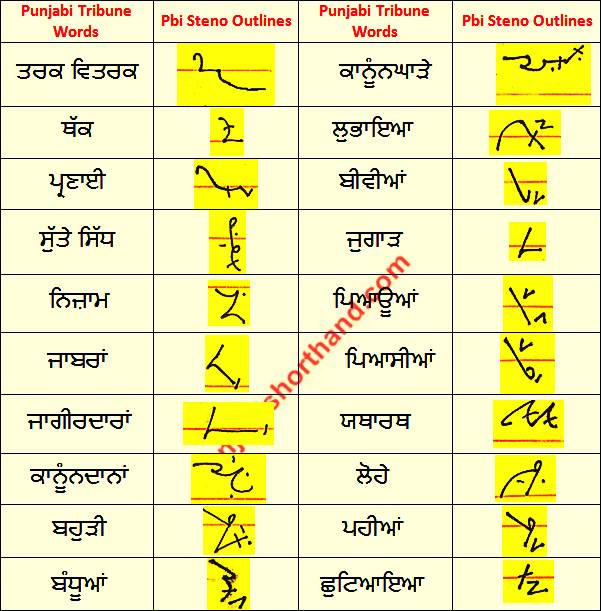 Punjabi Tribune Words Pbi Steno Outlines Punjabi Tribune Words Pbi Steno Outlines
ਤਰਕ ਵਿਤਰਕ ਕਾਨੂੰਨਘਾੜੇ
ਥੱਕ ਲੁਭਾਇਆ
ਪ੍ਰਣਾਈ ਬੀਵੀਆਂ
ਸੁੱਤੇ ਸਿੱਧ ਜੁਗਾੜ
ਨਿਜ਼ਾਮ ਪਿਆਊਆਂ
ਜਾਬਰਾਂ ਪਿਆਸੀਆਂ
ਜਾਗੀਰਦਾਰਾਂ ਯਥਾਰਥ
ਕਾਨੂੰਨਦਾਨਾਂ ਲੋਹੇ
ਬਹੁੜੀ ਪਹੀਆਂ
ਬੰਧੂਆਂ ਛੁਟਿਆਇਆ
shorthand.com